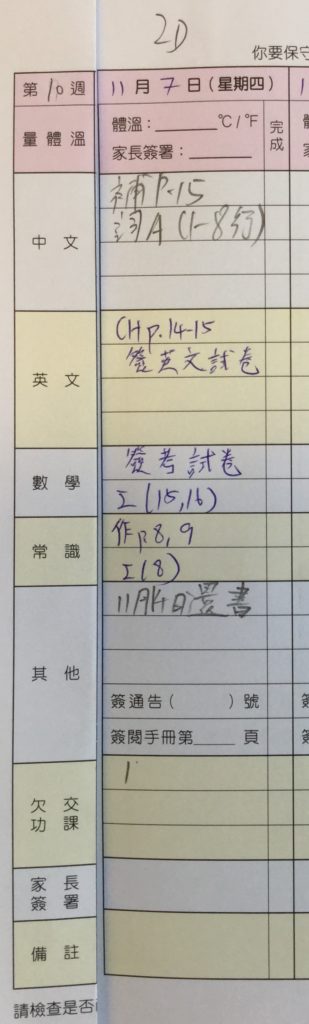 2D
你要保守
第10週 11月7日(星期四) 1
量體溫 體溫：______°C/°F 完成
家長簽署：______
中文 補P.15
詞A(1-8行)
英文 CHp.14-15
簽英文試卷
數學 簽考試卷
工(15,16)
常識 作p8,9
工(8)
其他 11月14日還書
簽通告( )號 簽
簽閱手冊第____頁 簽
欠交功課 1
家長簽署
備註
請檢查是否